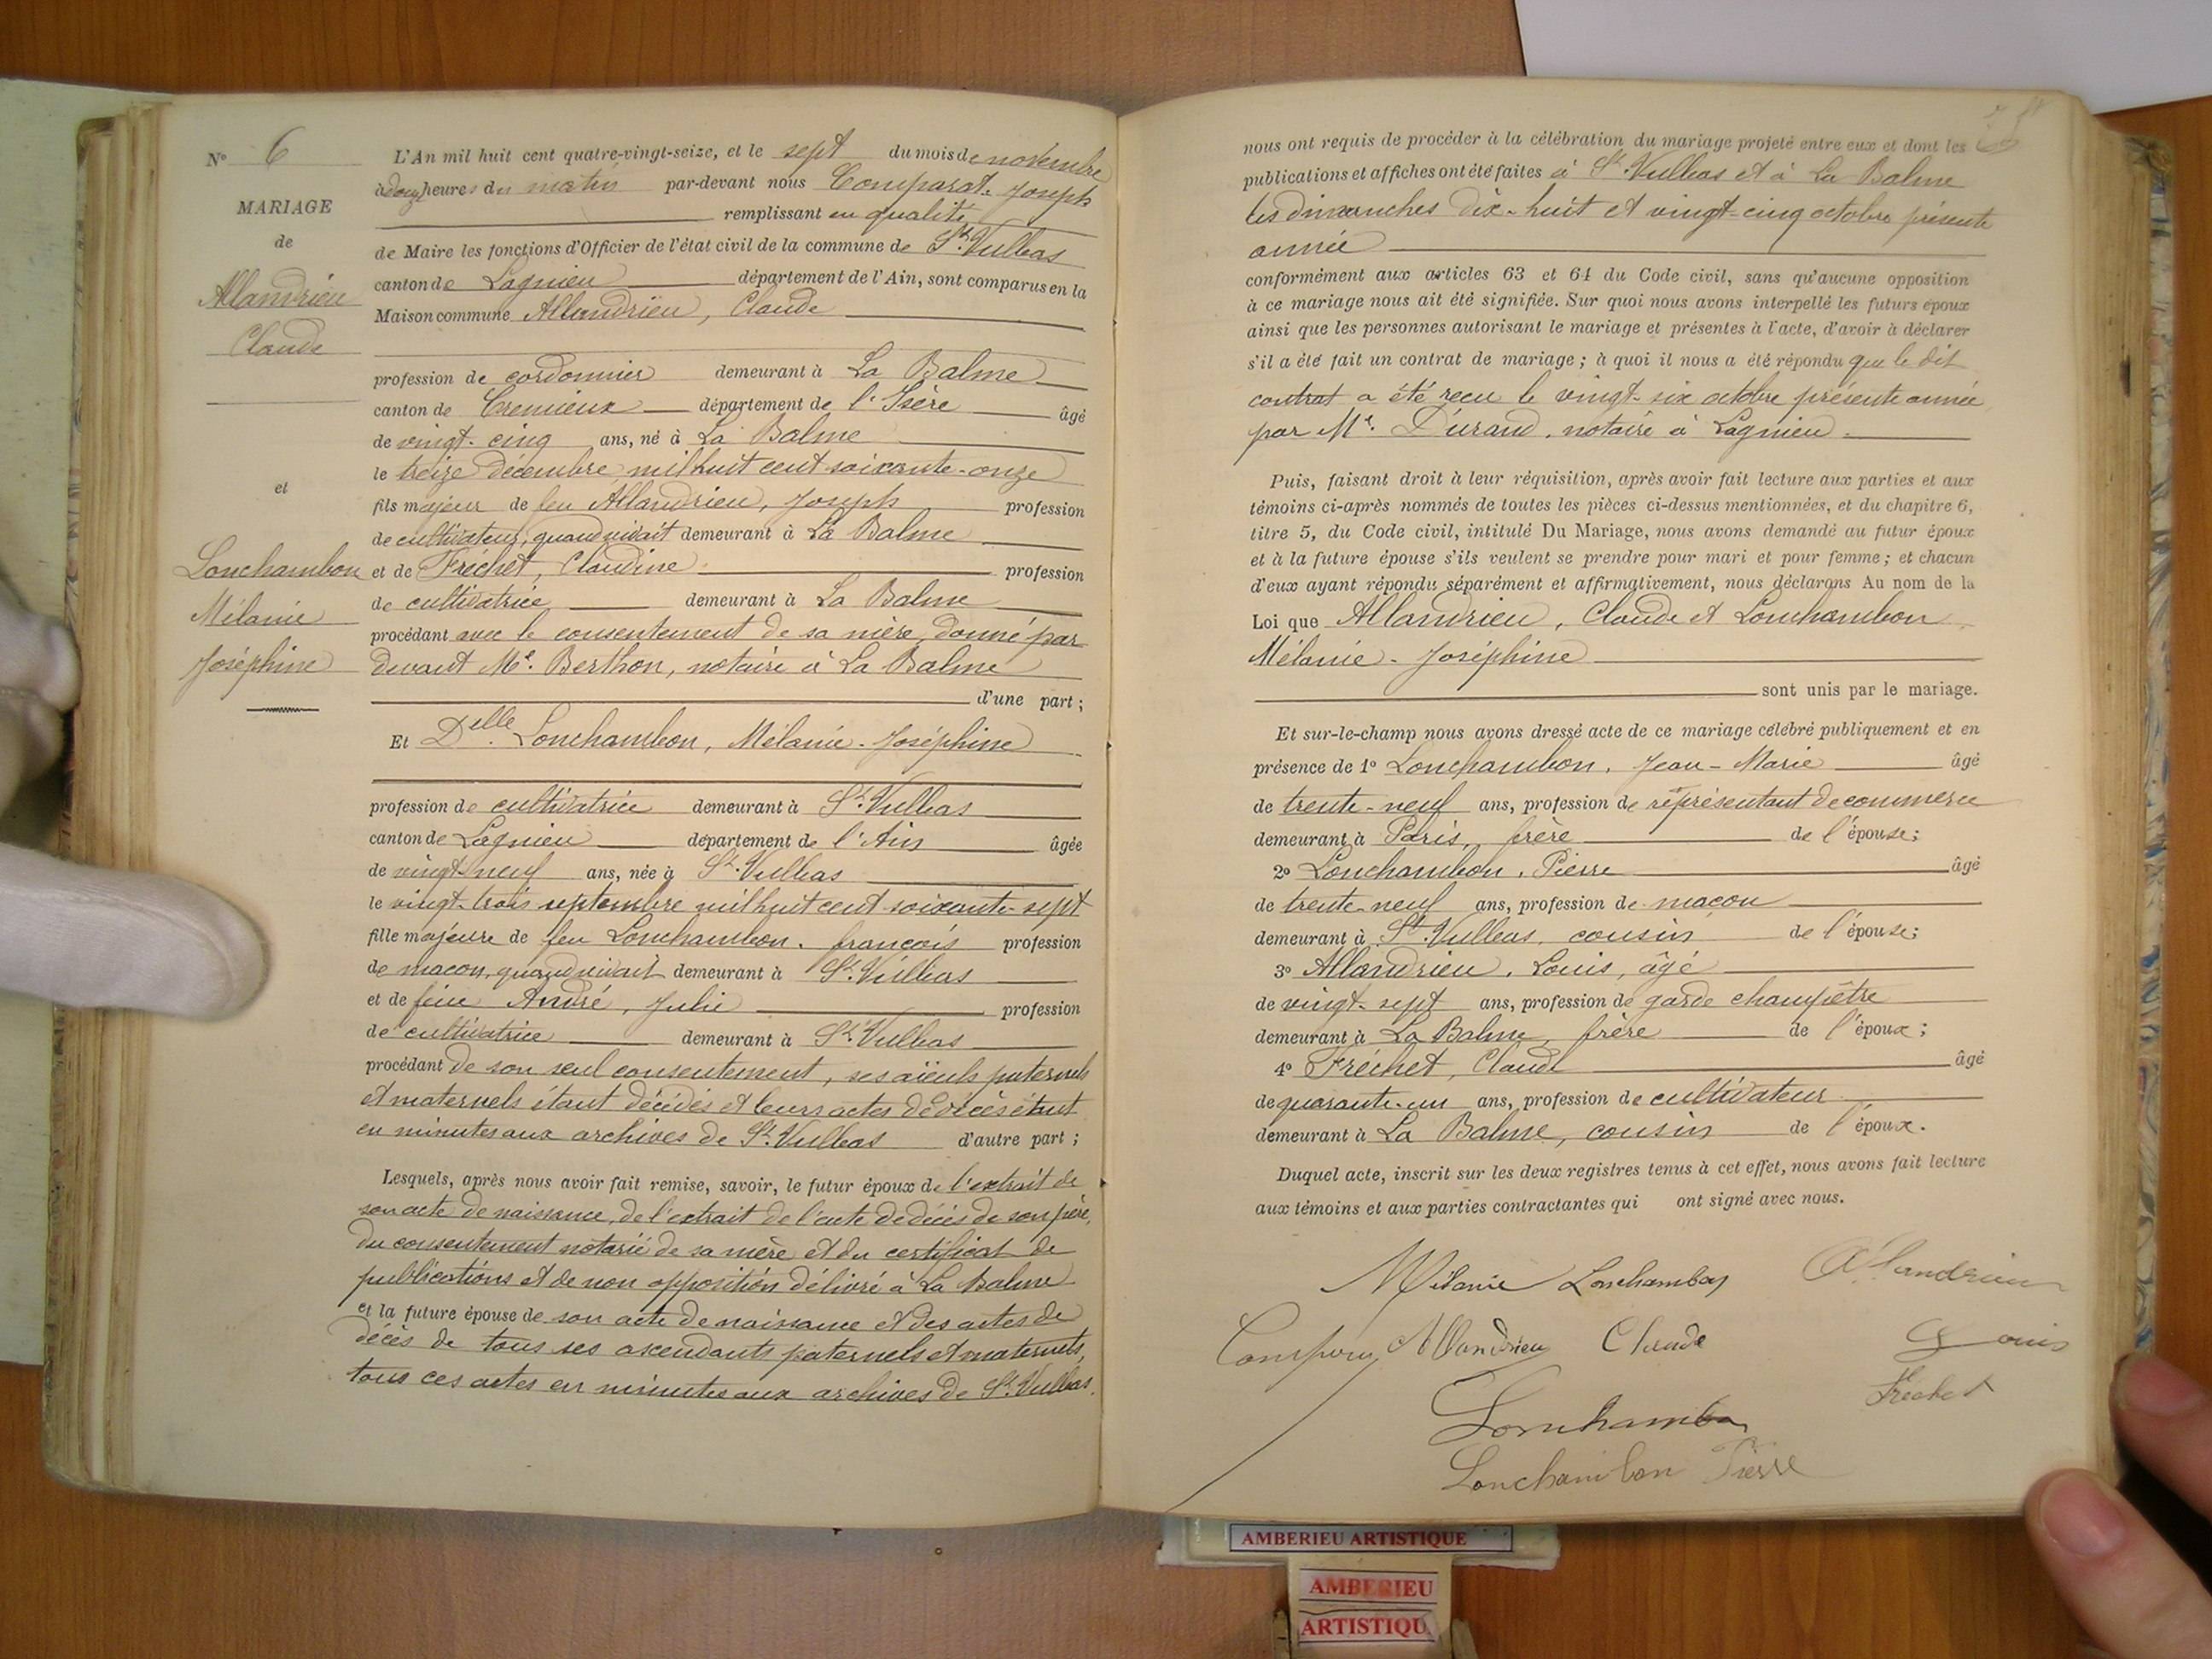 N° 6
MARIAGE
de
Allandrieu
Claude
et
Lonchambon
Mélanie
Joséphine
L'An mil huit cent quatre-vingt-seize, et le sept du mois de novembre
heures du matin par-devant nous Comparat. Joseph
remplissant en qualité
de Maire les fonctions d'Officier de l'état civil de la commune de St. Vulbas
canton de Lagnieu département de l'Ain, sont comparus en la
Maison commune Allandrieu, Claude
profession de cordonnier demeurant à La Balme
canton de Cremieux département de l'Isère âgé
de vingt-cinq ans, né à La Balme
le treize décembre mil huit cent soixante-onze
fils majeur de feu Allandrieu, Joseph profession
de cultivateur, quand vivait demeurant à La Balme
et de Fréchet, Claudine profession
de cultivatrice demeurant à La Balme
procédant avec le consentement de sa mère, donné par
devant Me. Berthon, notaire à La Balme
d'une part ;
Et Delle. Lonchambon, Mélanie-Joséphine
profession de cultivatrice demeurant à St. Vulbas
canton de Lagnieu département de l'Ain âgée
de vingt-neuf ans, née à St. Vulbas
le vingt-trois septembre mil huit cent soixante-sept
fille majeure de feu Lonchambon. françois profession
de maçon, quand vivait demeurant à St. Vulbas
et de feue André, Julie profession
de cultivatrice demeurant à St. Vulbas
procédant de son seul consentement, ses aïeuls paternels
et maternels étant décédés et leurs actes de décès étant
en minutes aux archives de St. Vulbas d'autre part ;
Lesquels, après nous avoir fait remise, savoir, le futur époux de l'extrait de
son acte de naissance, de l'extrait de l'acte de décès de son père,
du consentement notarié de sa mère et du certificat de
publications et de non opposition délivré à La Balme
et la future épouse de son acte de naissance et des actes de
décès de tous ses ascendants paternels et maternels,
tous ces actes en minutes aux archives de St. Vulbas.
nous ont requis de procéder à la célébration du mariage projeté entre eux et dont les
publications et affiches ont été faites à St. Vulbas et à La Balme
les dimanches dix-huit et vingt-cinq octobre présente
année
conformément aux articles 63 et 64 du Code civil, sans qu'aucune opposition
à ce mariage nous ait été signifiée. Sur quoi nous avons interpellé les futurs époux
ainsi que les personnes autorisant le mariage et présentes à l'acte, d'avoir à déclarer
s'il a été fait un contrat de mariage ; à quoi il nous a été répondu que le dit
contrat a été reçu le vingt-six octobre présente année
par Me. Durand, notaire à Lagnieu.
Puis, faisant droit à leur réquisition, après avoir fait lecture aux parties et aux
témoins ci-après nommés de toutes les pièces ci-dessus mentionnées, et du chapitre 6,
titre 5, du Code civil, intitulé Du Mariage, nous avons demandé au futur époux
et à la future épouse s'ils veulent se prendre pour mari et pour femme ; et chacun
d'eux ayant répondu séparément et affirmativement, nous déclarons Au nom de la
Loi que Allandrieu, Claude et Lonchambon
Mélanie-Joséphine
sont unis par le mariage.
Et sur-le-champ nous avons dressé acte de ce mariage célébré publiquement et en
présence de 1° Lonchambon, Jean-Marie âgé
de trente-neuf ans, profession de représentant de commerce
demeurant à Paris, frère de l'épouse ;
2° Lonchambon, Pierre âgé
de trente-neuf ans, profession de maçon
demeurant à St. Vulbas, cousin de l'épouse ;
3° Allandrieu, Louis, âgé
de vingt-sept ans, profession de garde champêtre
demeurant à La Balme, frère de l'époux ;
4° Fréchet, Claude âgé
de quarante-un ans, profession de cultivateur
demeurant à La Balme, cousin de l'époux.
Duquel acte, inscrit sur les deux registres tenus à cet effet, nous avons fait lecture
aux témoins et aux parties contractantes qui ont signé avec nous.
Mélanie Lonchambon Allandrieu
Allandrieu Claude Louis
Fréchet
Lonchambon
Lonchambon Pierre
AMBERIEU ARTISTIQUE
AMBERIEU
ARTISTIQU